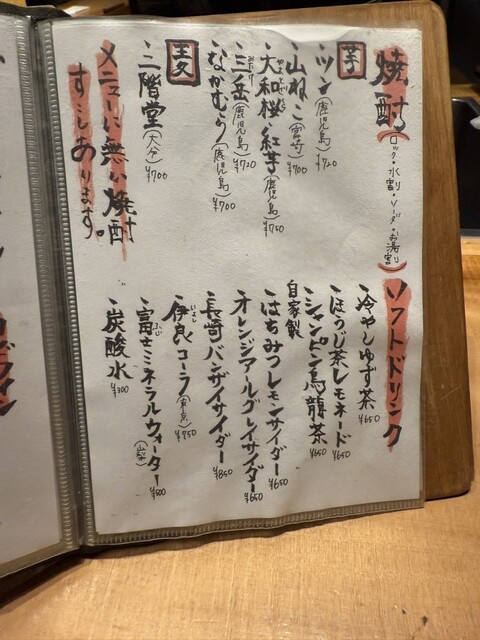 焼酎(ロック・水割・ソーダ・お湯割)
芋
・ツン(鹿児島)¥720
・山ねこ(宮崎)¥700
・大和桜・紅芋(鹿児島)¥750
・三岳(鹿児島)¥720
・なかむら(鹿児島)¥700
麦
・二階堂(大分)¥700
メニューに無い焼酎
すこしあります。
ソフトドリンク
・冷やしゆず茶¥650
・ほうじ茶レモネード¥650
・ジャンピン烏龍茶¥650
自家製
・はちみつレモンサイダー¥650
・オレンジアールグレイサイダー¥650
・長崎バンザイサイダー¥850
・伊良コーラ(東京)¥750
・富士ミネラルウォーター(山梨)¥500
・炭酸水¥300